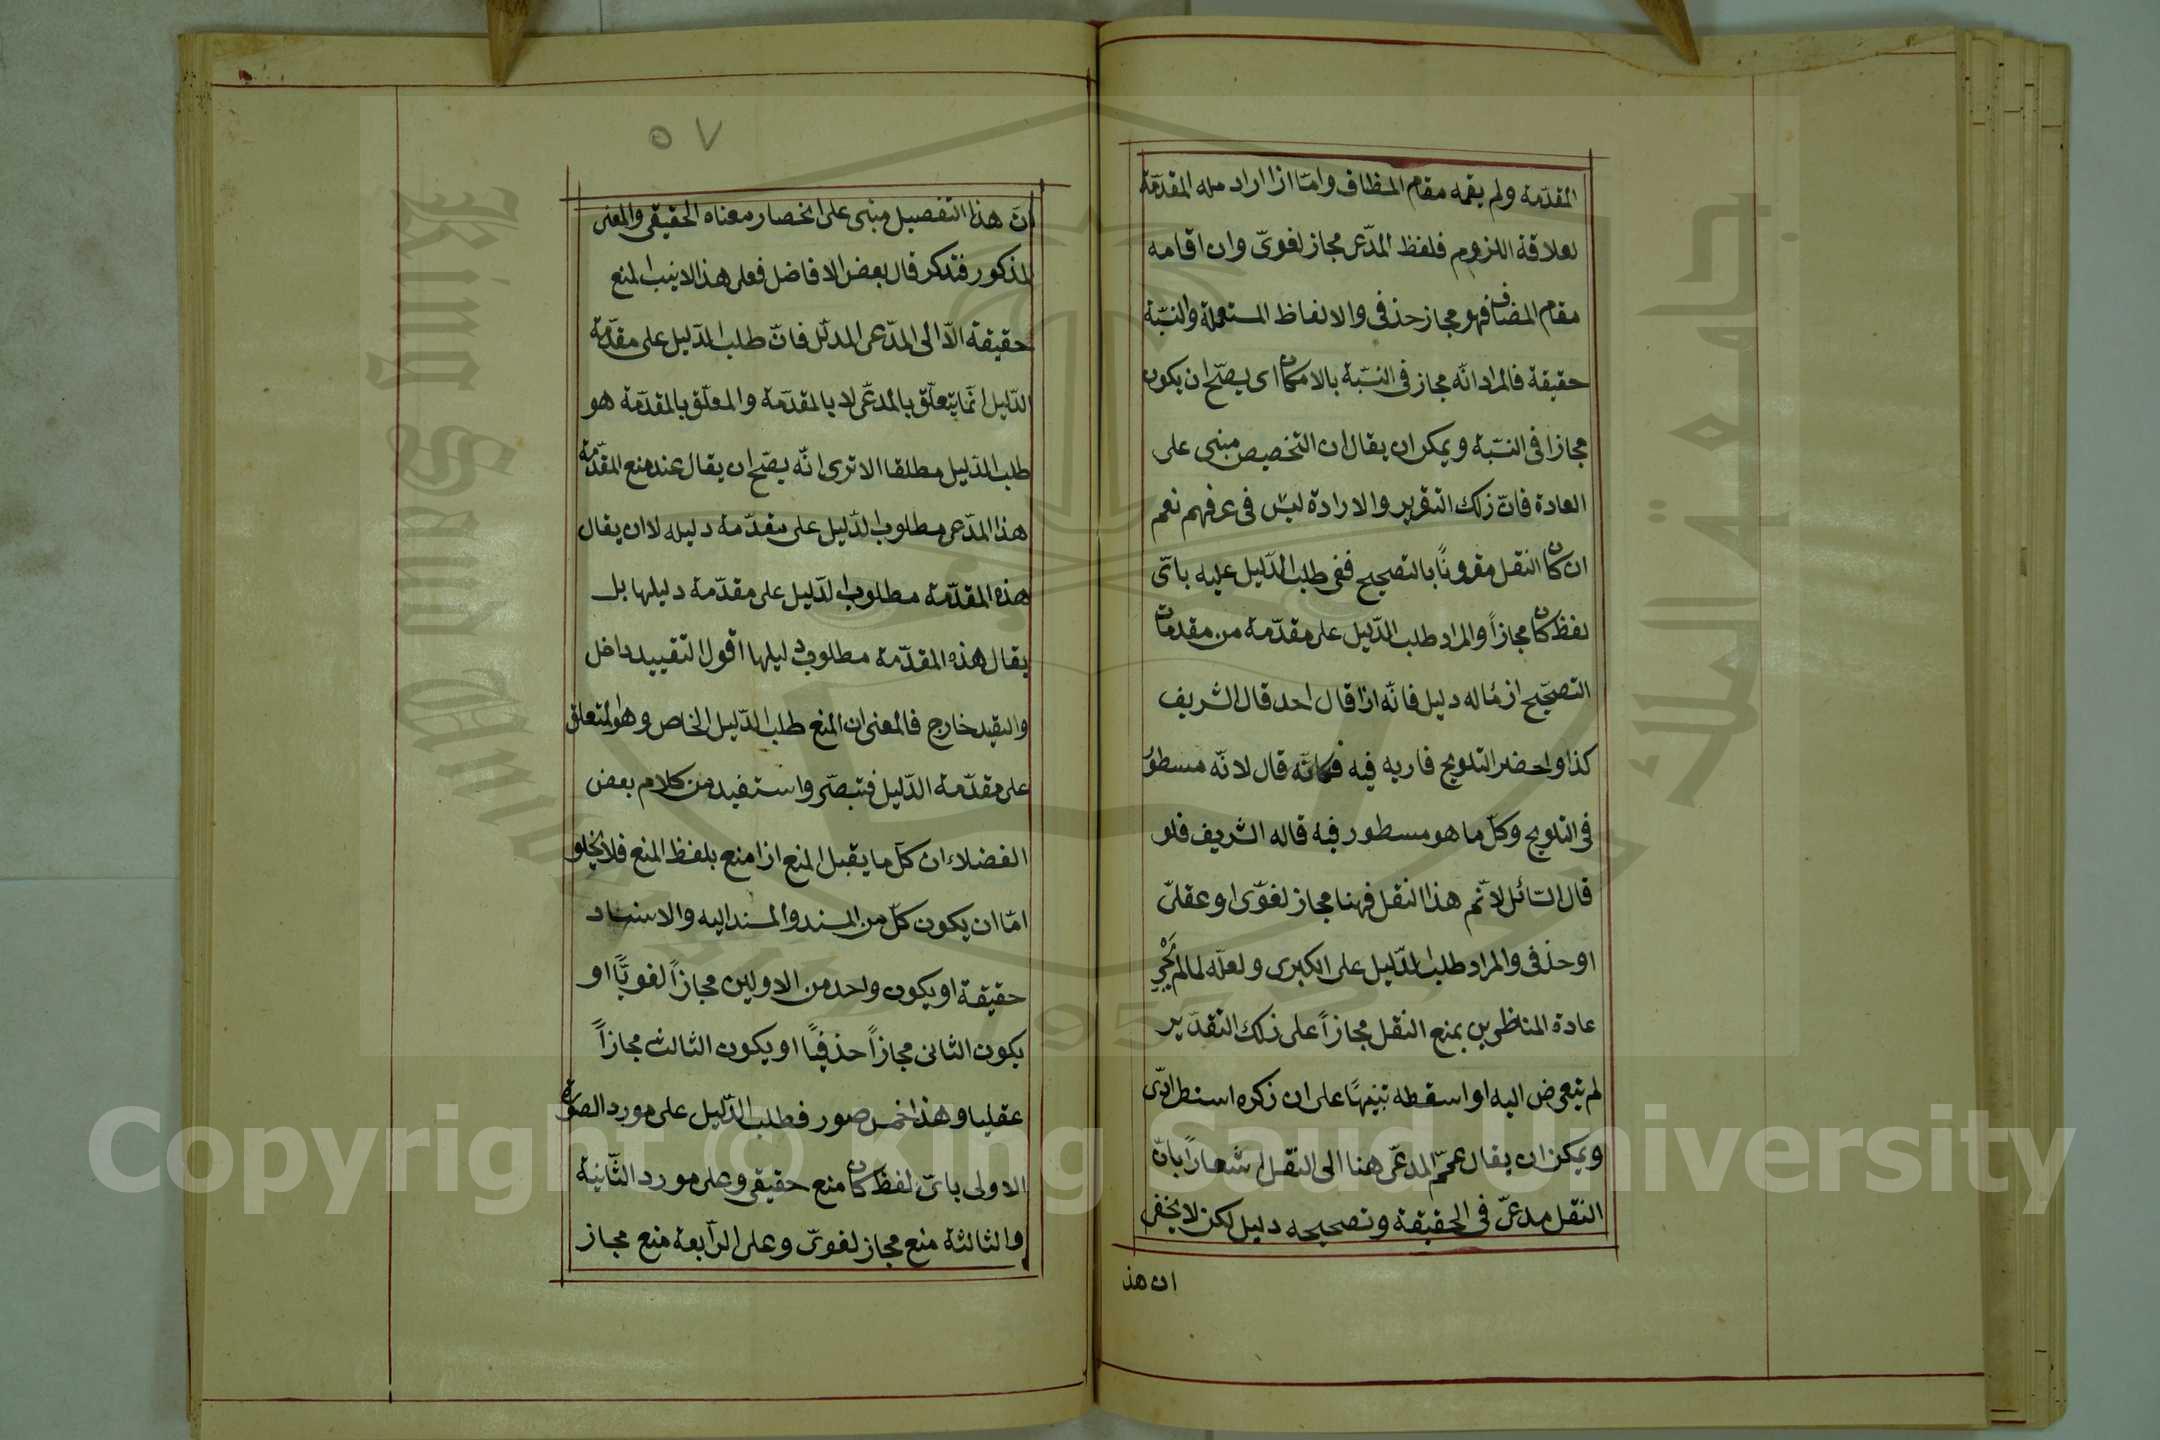 المقدّمة ولم يقمه مقام المظاف وامّا اذا اراد منه المقدّمة
لعلاقة اللزوم فلفظ المدّعى مجاز لغوىّ وان اقامه
مقام المضاف فهو مجاز حذفى والالفاظ المستعملة والنسّبة
حقيقة فالمراد انّه مجاز فى النسّبة بالامكان اى يصحّ ان يكون
مجازا فى النسّبة ويمكن ان يقال ان التخصيص مبنى على
العادة فانّ ذلك التقرير والارادة ليس فى عرفهم نعم
ان كان النقل مقرونًا بالتصحيح ففى طلب الدّليل عليه باىّ
لفظ كان مجازاً والمراد طلب الدّليل على مقدّمة من مقدمات
التصحّيح اذ ماله دليل فانّه اذا قال احد قال الشريف
كذا واحضر التلويح فاريه فيه فكانّه قال لانّه مسطور
فى التلويح وكلّ ما هو مسطور فيه قاله الشريف فلو
قال السّائل لانّم هذا النقل فهنا مجاز لغوّى او عقلىّ
او حذفى والمراد طلب الدّليل على الكبرى ولعلّه لما لم يَجْرِ
عادة المناظرين بمنع النقل مجازاً على ذلك التقدير
لم يتعرض اليه او اسقطه تنبيهًا على ان ذكره استطرادىّ
ويمكن ان يقال عمّم المدعّى هنا الى النقل اشعارًا بانّ
النقل مدعىّ فى الحقيقة وتصحيحه دليل لكن لا يخفى
ان هذ
٥٧
انّ هذا التفصيل مبنى على انحصار معناه الحقيقى والمعنى
المذكور فتذكر قال بعض الافاضل فعلى هذا لا ينسب المنع
حقيقة الّا الى المدّعى المدلّل فانّ طلب الدّليل على مقدّمة
الدّليل انّما يتعلّق بالمدعّى لا بالمقدّمة والمعلّق بالمقدّمة هو
طلب الدّليل مطلقا الا ترى انّه يصحّ ان يقال عند منع المقدّمة
هذا المدّعى مطلوب الدّليل على مقدّمة دليله لا ان يقال
هذه المقدّمة مطلوب الدّليل على مقدّمة دليلها بل
يقال هذه المقدّمة مطلوب دليلها اقول التقييد داخل
والقيد خارج فالمعنى ان المنع طلب الدّليل الخاص وهو المتعلق
على مقدّمة الدّليل فتبصّر واستفيد من كلام بعض
الفضلاء ان كلّ ما يقبل المنع اذا منع بلفظ المنع فلا يخلو
امّا ان يكون كلّ من المسند والمسند اليه والاسناد
حقيقة او يكون واحد من الاولين مجازاً لغويًّا او
يكون الثانى مجازاً حذفيًا او يكون الثالث مجازاً
عقليا وهذا خمس صور فطلب الدّليل على مورد الصورة
الاولى باىّ لفظ كان منع حقيقى وعلى مورد الثّانية
والثالثة منع مجاز لغوىّ وعلى الرّابعة منع مجاز
جامعة الملك سعود
King Saud University
1957
Copyright © King Saud University